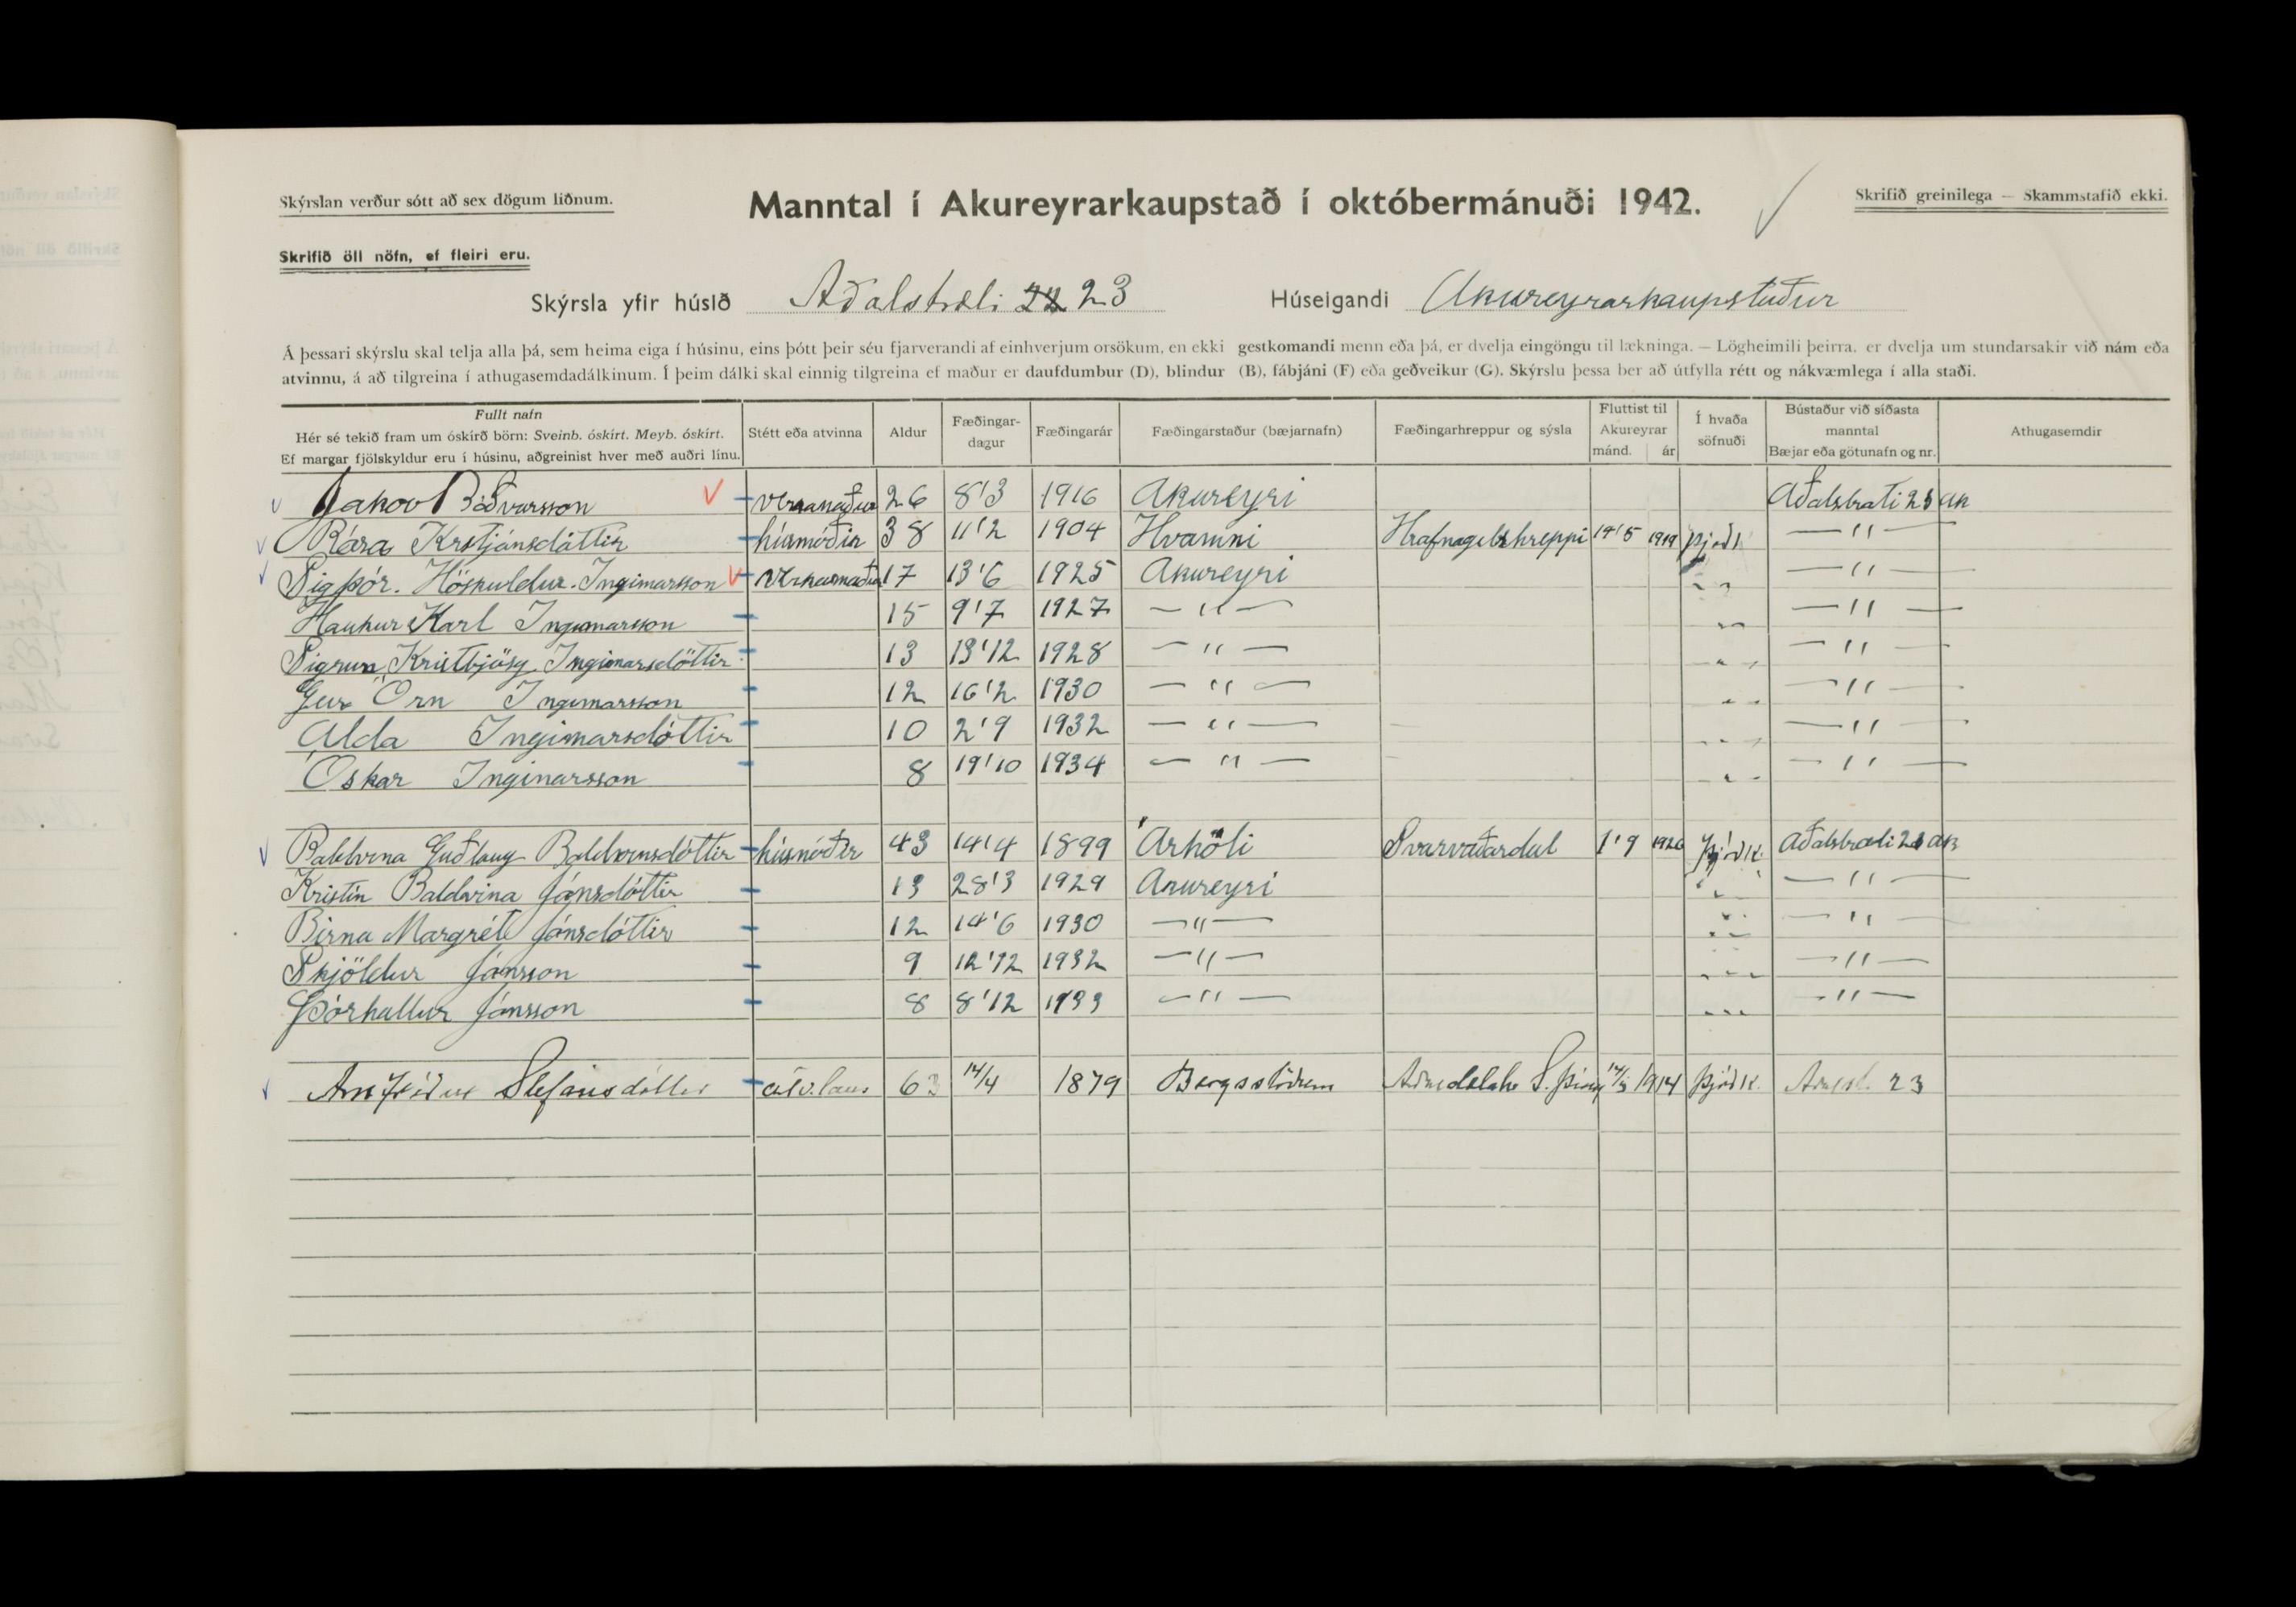 Skýrslan verður sótt að sex dögum liðnum.
Manntal í Akureyrarkaupstað í októbermánuði 1942.
Skrifið greinilega — Skammstafið ekki.
Skrifið öll nöfn, ef fleiri eru.
Skýrsla yfir húsið Aðalstræti 23 Húseigandi Akureyrarkaupstaður
Á þessari skýrslu skal telja alla þá, sem heima eiga í húsinu, eins þótt þeir séu fjarverandi af einhverjum orsökum, en ekki gestkomandi menn eða þá, er dvelja eingöngu til lækninga. — Lögheimili þeirra, er dvelja um stundarsakir við nám eða
atvinnu, á að tilgreina í athugasemdadálkinum. Í þeim dálki skal einnig tilgreina ef maður er daufdumbur (D), blindur (B), fábjáni (F) eða geðveikur (G). Skýrslu þessa ber að útfylla rétt og nákvæmlega í alla staði.
Fullt nafn
Hér sé tekið fram um óskírð börn: Sveinb. óskírt. Meyb. óskírt.
Ef margar fjölskyldur eru í húsinu, aðgreinist hver með auðri línu.
Stétt eða atvinna
Aldur
Fæðingar-
dagur
Fæðingarár
Fæðingarstaður (bæjarnafn)
Fæðingarhreppur og sýsla
Fluttist til
Akureyrar
mánd. ár
Í hvaða
söfnuði
Bústaður við síðasta
manntal
Bæjar eða götunafn og nr.
Athugasemdir
Jakov Böðvarsson verkamaður 26 8'3 1916 Akureyri Aðalstræti 23 Ak
Kára Krstjánsdóttir húsmóðir 38 11'2 1904 Hvammi Hrafnagilshreppi 14'5 1919 þjóðk — " —
Sigþór. Höskuldur. Ingimarsson verkamaður 17 13'6 1925 Akureyri " — " —
Haukur Karl Ingimarsson 15 9'7 1927 — " — " — " —
Sigrun Kristbjörg Ingimarsdóttir 13 13'12 1928 — " — " — " —
Geir Örn Ingimarsson 12 16'2 1930 — " — " — " —
Alda Ingimarsdóttir 10 2'9 1932 — " — " — " —
Óskar Ingimarsson 8 19'10 1934 — " — " — " —
Baldvina Guðlaug Baldvinsdóttir húsmóðir 43 14'4 1899 Árhóli Svarvaðardal 1'9 1926 Þjóðk. Aðalstræti 23 Ak
Kristín Baldvina Jónsdóttir 13 28'3 1929 Akureyri " — " —
Birna Margrét Jónsdóttir 12 14'6 1930 — " — " — " —
Skjöldur Jónsson 9 12'12 1932 — " — " — " —
Þórhallur Jónsson 8 8'12 1933 — " — " — " —
Arnfríður Stefánsdóttir atv.laus 63 14/4 1879 Bergsstöðum Aðaldalahr S. Þing 14/5 1914 Þjóðk. Aðalst. 23